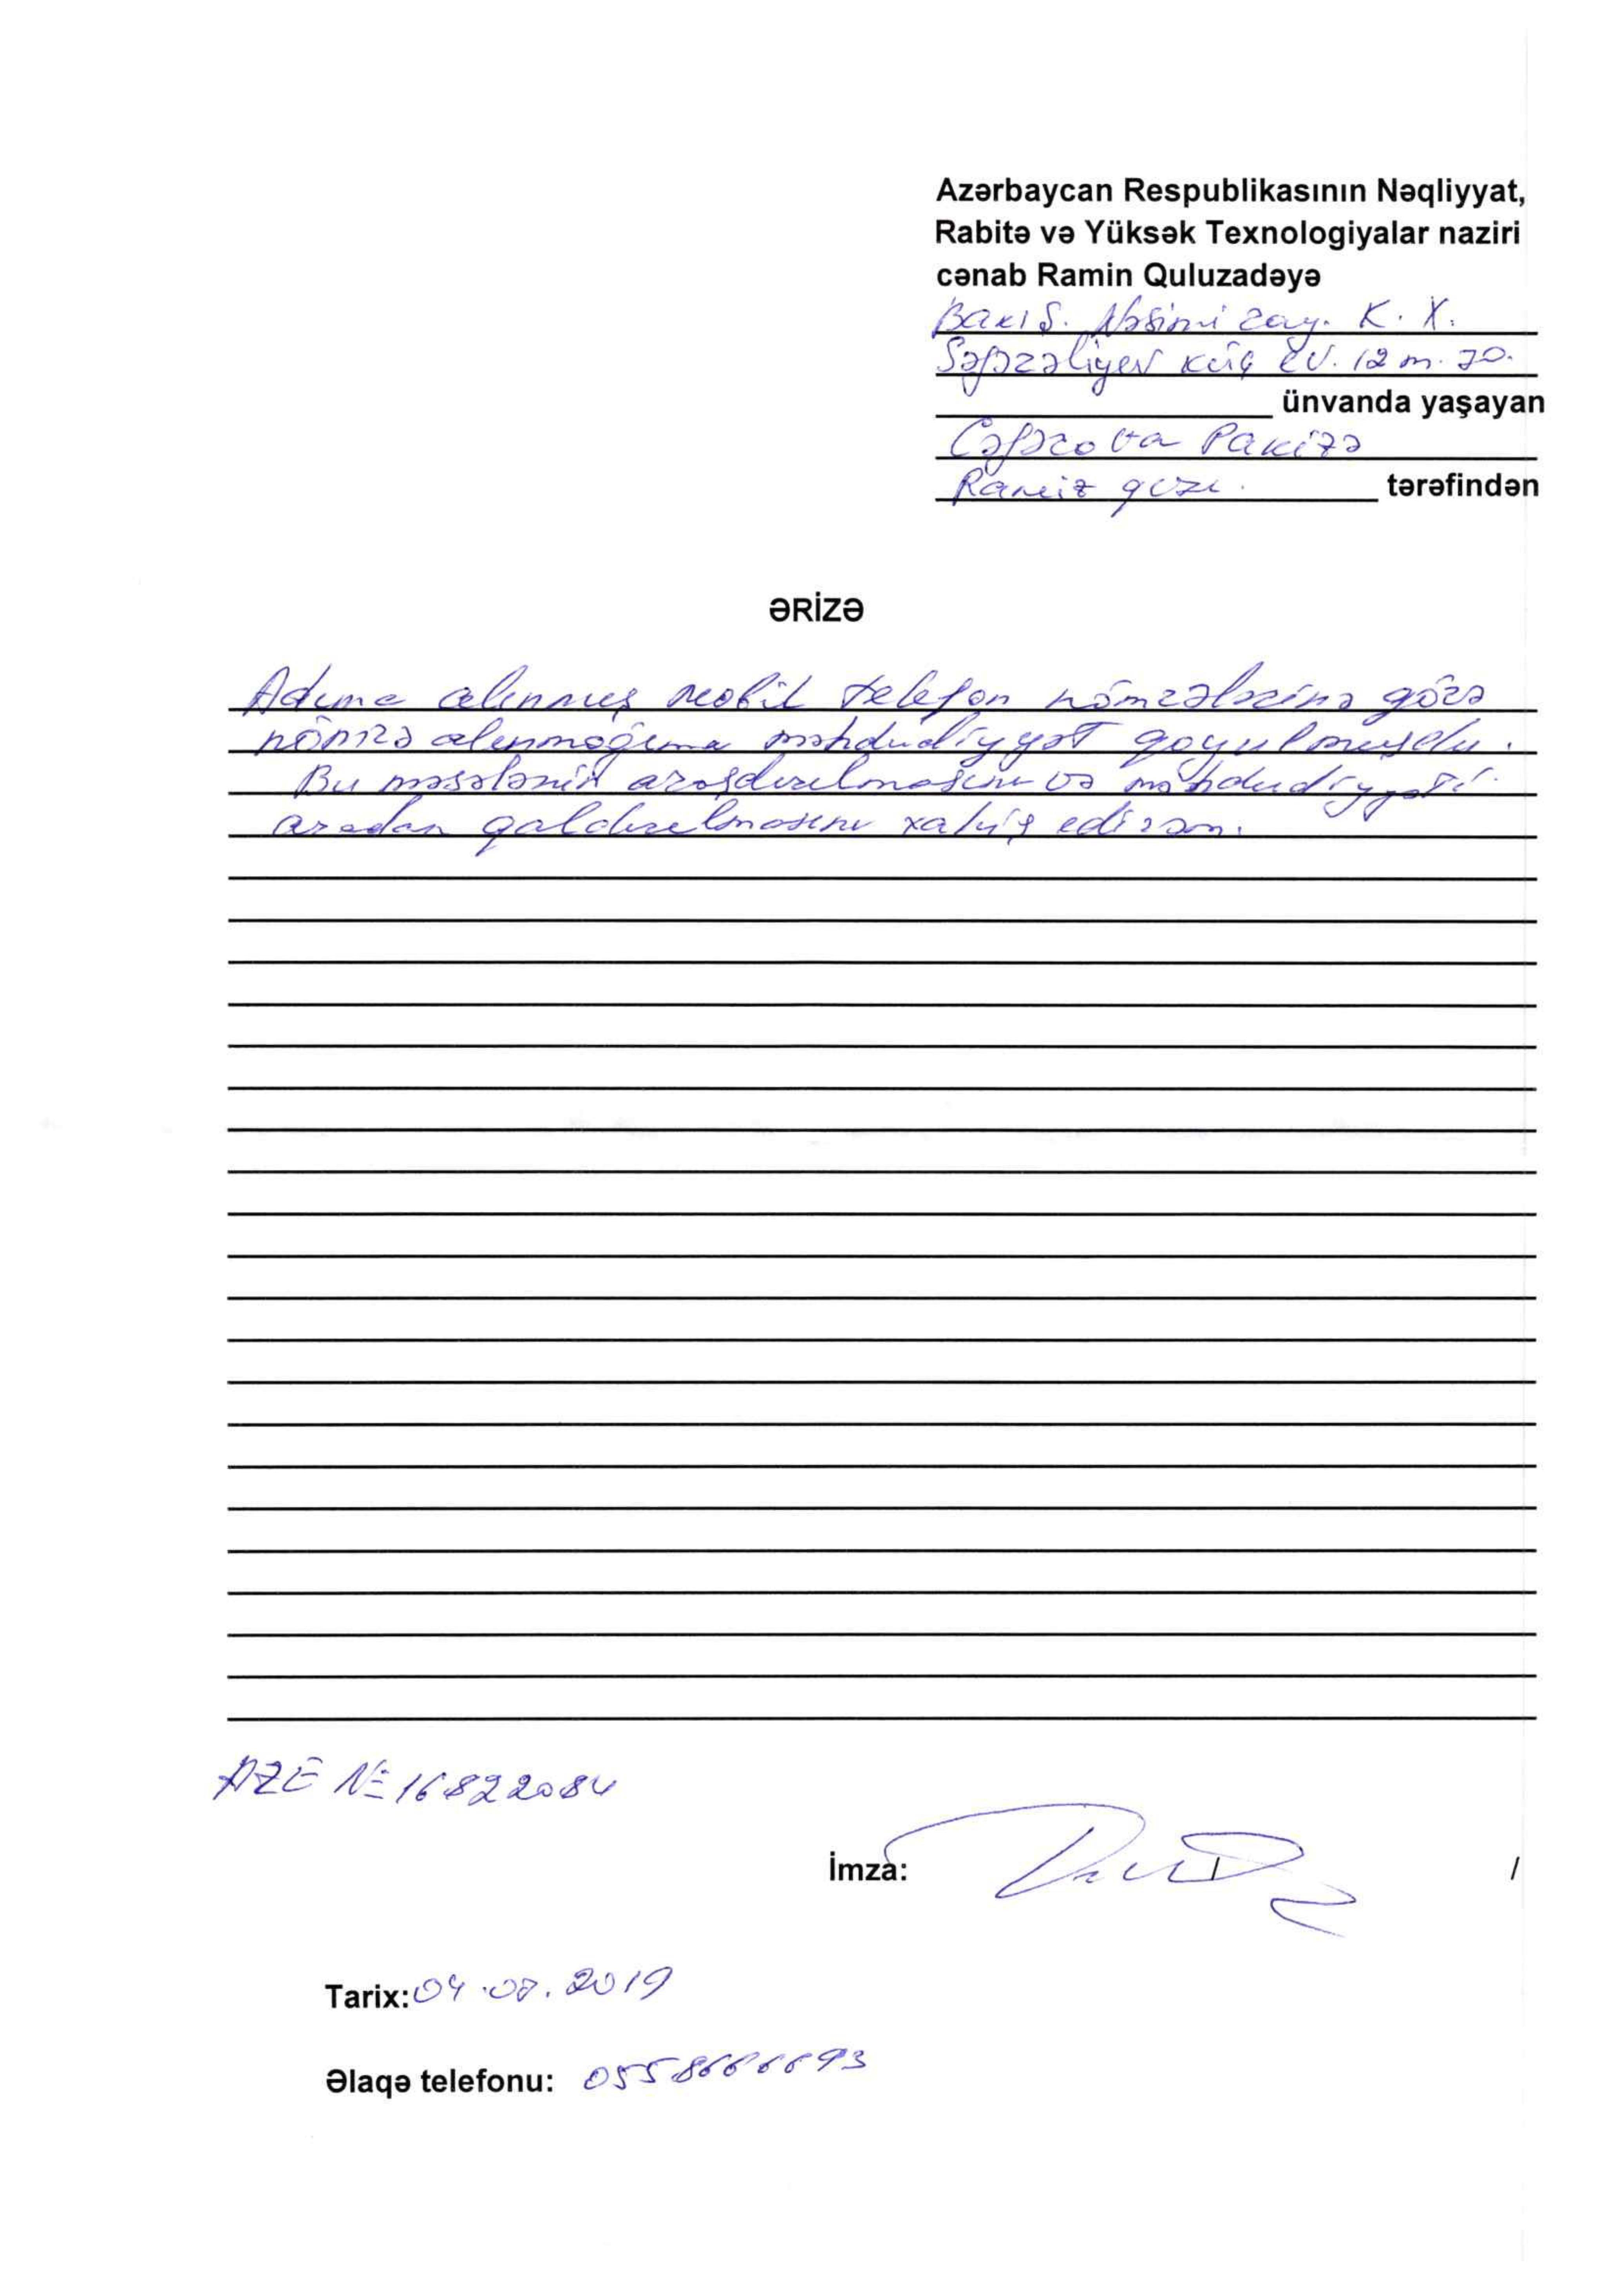 Azərbaycan Respublikasının Nəqliyyat,
Rabitə və Yüksək Texnologiyalar naziri
cənab Ramin Quluzadəyə
Bakı ş. Nəsimi ray. K. X.
Səfərəliyev küç ev. 12 m. 70.
ünvanda yaşayan
Cəfərova Pakizə
Ramiz qızı. tərəfindən
ƏRİZƏ
Adıma alınmış mobil telefon nömrələrinə görə
nömrə alınmağıma məhdudiyyət qoyulmuşdu.
Bu məsələnin araşdırılmasını və məhdudiyyəti
aradan qaldırılmasını xahiş edirəm.
AZE № 16822084
İmza: / /
Tarix: 04.07.2019
Əlaqə telefonu: 0558666693